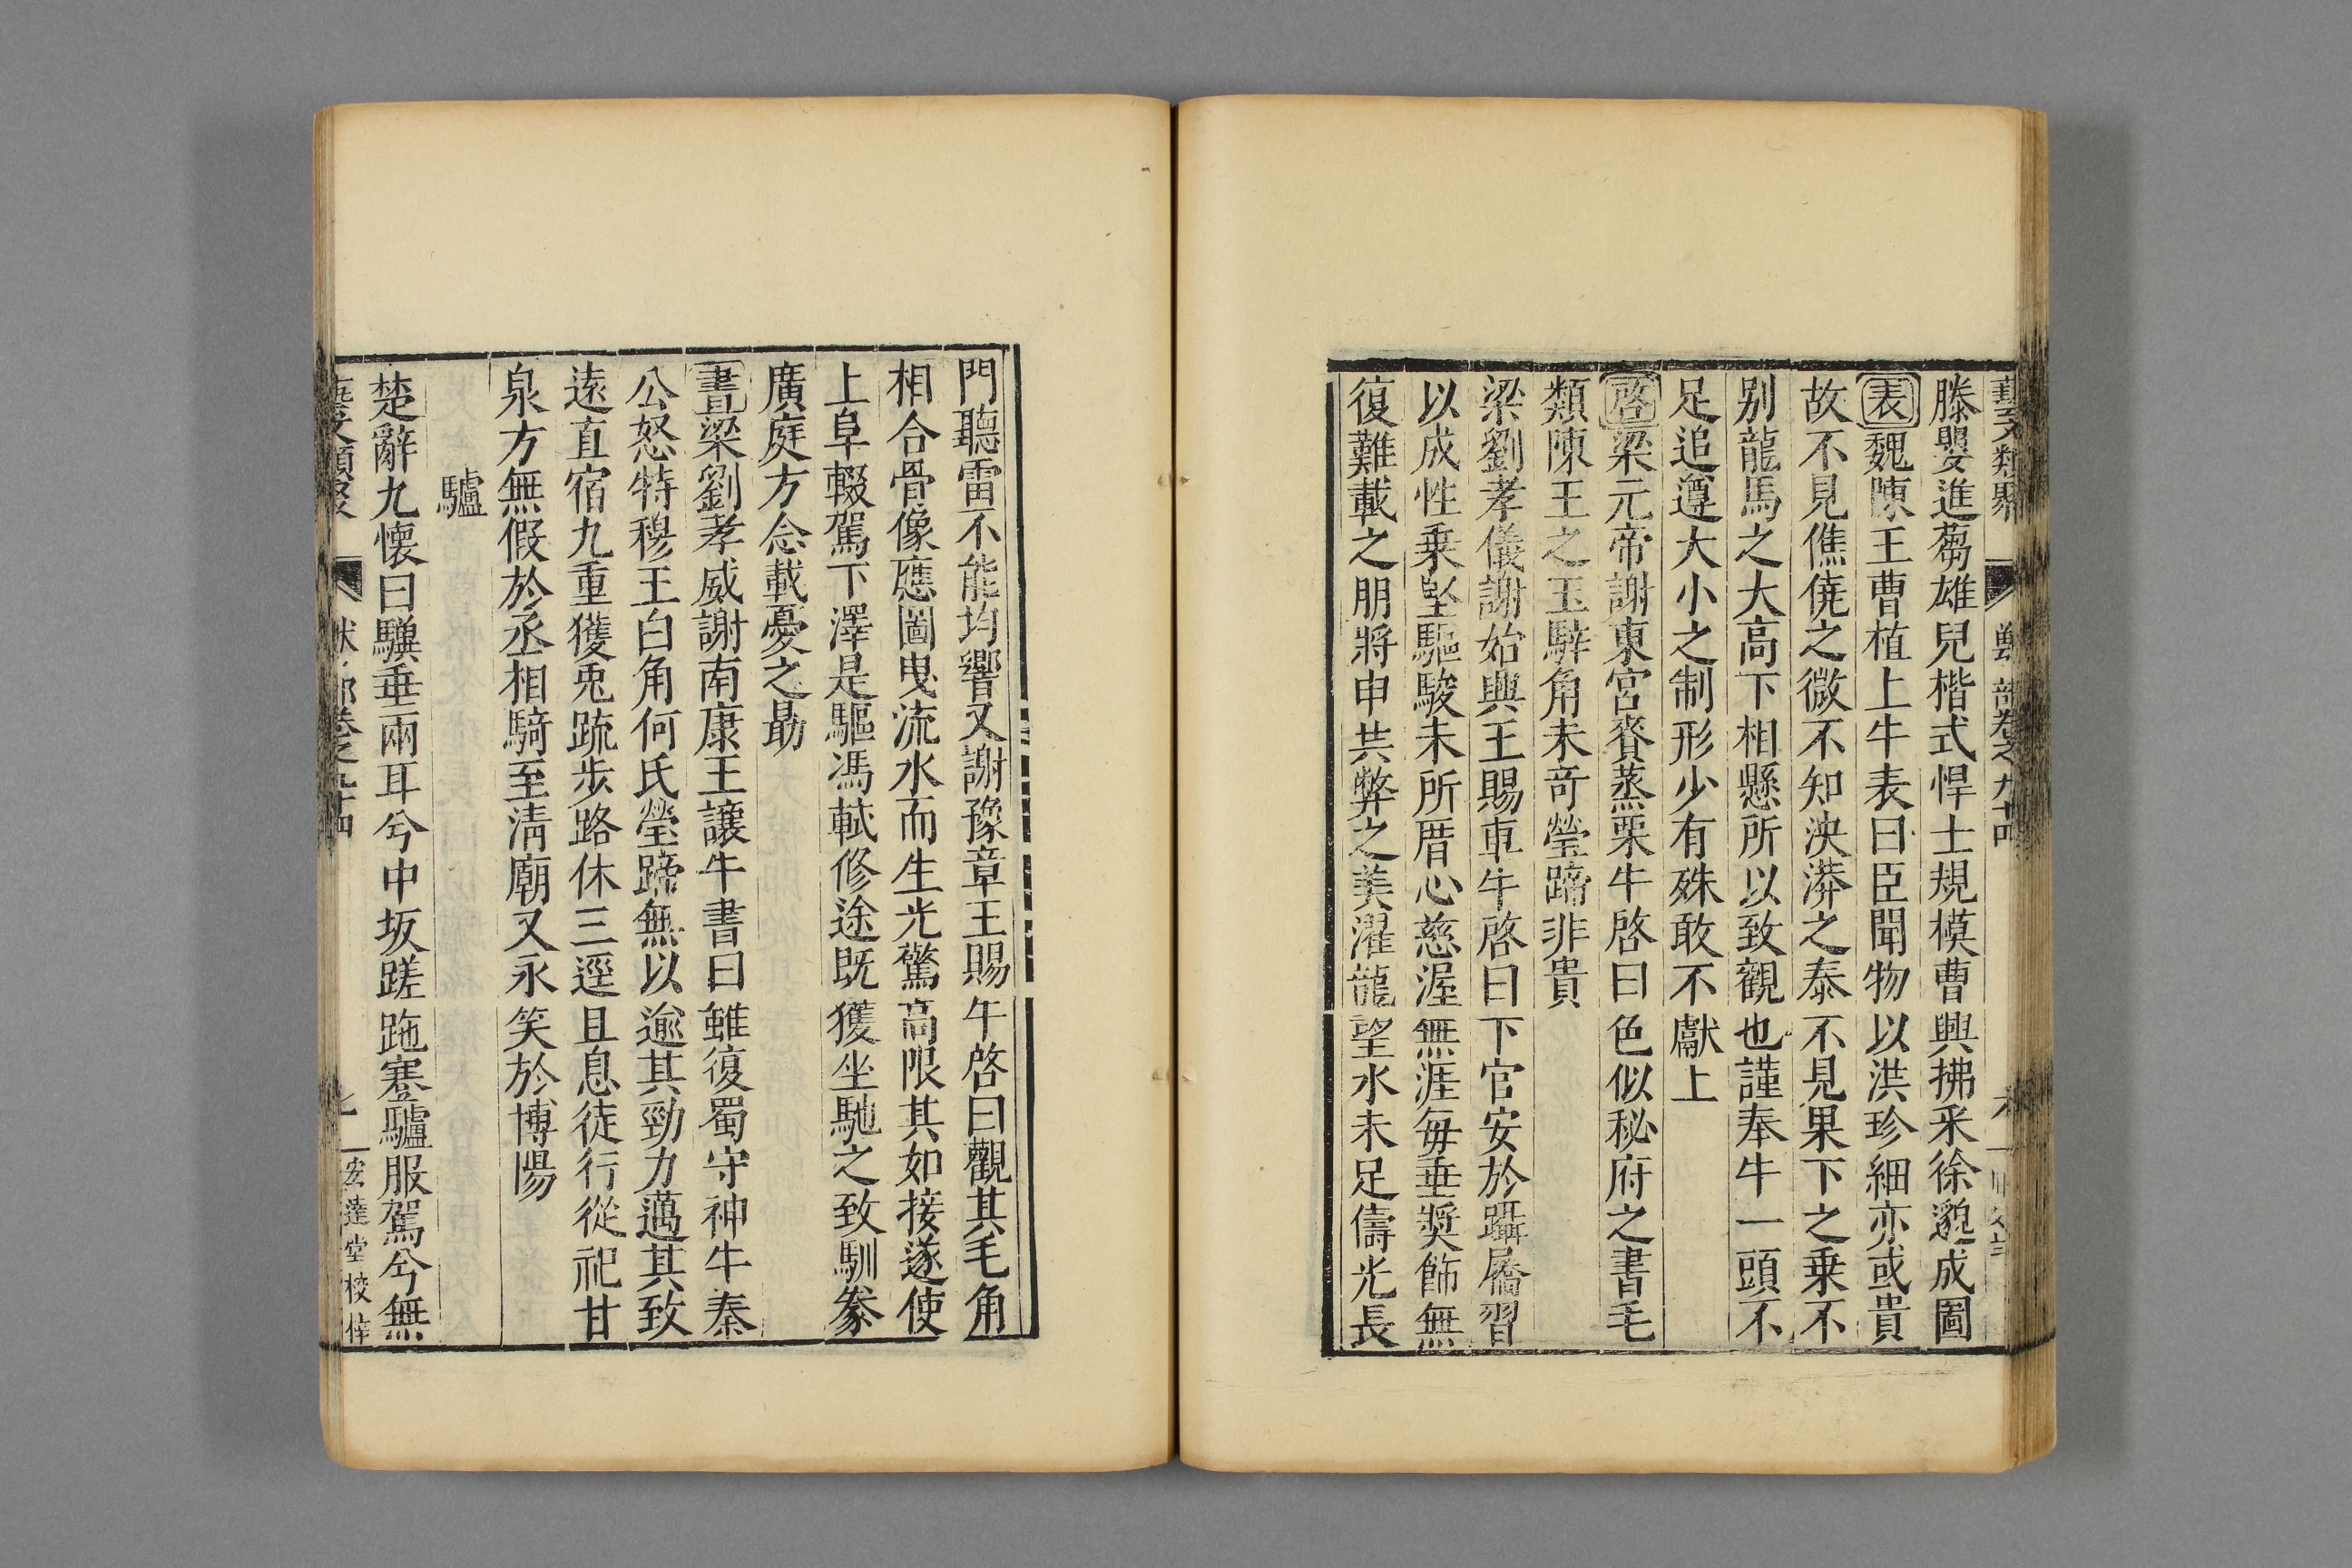 藝文類聚 獸部卷之九十四
滕嬰進蒭雄兒楷式悍士規模曹興拂采徐邈成圖
表魏陳王曹植上牛表曰臣聞物以洪珍細亦或貴
故不見僬僥之微不知泱漭之泰不見果下之乗不
别龍馬之大高下相懸所以致觀也謹奉牛一頭不
足追遵大小之制形少有殊敢不獻上
啓梁元帝謝東宮賚蒸栗牛啓曰色似秘府之書毛
類陳王之玉騂角未竒瑩蹄非貴
梁劉孝儀謝始興王賜車牛啓曰下官安於躡屩習
以成性乗堅驅駿未所厝心慈渥無涯毎垂奬飾無
復難載之朋將申共弊之美濯龍望水未足儔光長
門聽雷不能均響又謝豫章王賜牛啓曰觀其毛角
相合骨像應圖曳流水而生光驚高限其如接遂使
上阜輟駕下澤是驅馮軾修途既獲坐馳之致馴豢
廣庭方念載憂之勗
書梁劉孝威謝南康王讓牛書曰雖復蜀守神牛秦
公怒特穆王白角何氏瑩蹄無以逾其勁力邁其致
遠直宿九重獲兎疏步路休三逕且息徒行從祀甘
泉方無假於丞相騎至淸廟又永笑於博陽
驢
楚辭九懷曰驥垂兩耳兮中坂蹉跎蹇驢服駕兮無
藝文類聚 獸部卷之九十四 七 宏達堂校